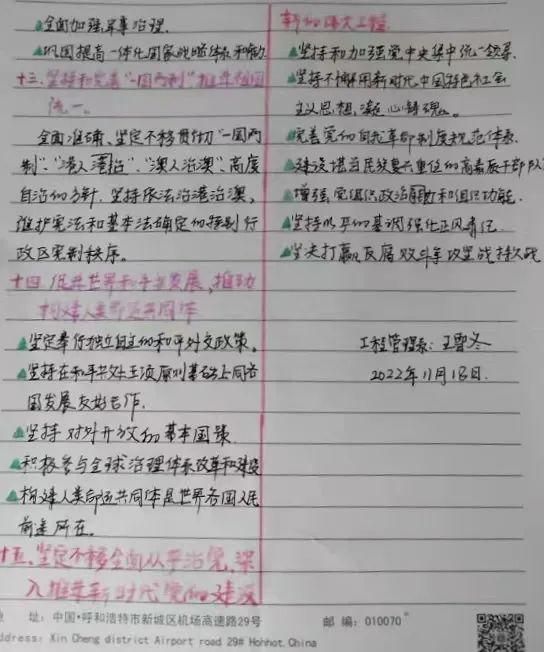 全面加强军事治理.
巩固提高一体化国家战略体系和能力
十三.坚持和完善"一国两制",推进祖国
统一。
全面准确、坚定不移贯彻"一国两
制"、"港人治港"、"澳人治澳"、高度
自治的方针,坚持依法治港治澳,
维护宪法和基本法确定的特别行
政区宪制秩序。
十四.促进世界和平与发展,推动
构建人类命运共同体
坚定奉行独立自主的和平外交政策。
坚持在和平共处五项原则基础上同各
国发展友好合作.
坚持对外开放的基本国策
积极参与全球治理体系改革和建设
构建人类命运共同体是世界各国人民
前途所在。
十五、坚定不移全面从严治党,深
入推进新时代党的建设
新的伟大工程.
坚持和加强党中央集中统一领导.
坚持不懈用新时代中国特色社会
主义思想,凝心铸魂。
完善党的自我革命制度规范体系.
建设堪当民族复兴重任的高素质干部队
增强党组织政治功能和组织功能.
坚持以严的基调强化正风肃纪.
坚决打赢反腐败斗争攻坚战持久战
工程管理系:王雪冬
2022年11月18日.
址:中国·呼和浩特市新城区机场高速路29号 邮 编:010070
ddress: Xin Cheng district Airport road 29# Hohhot. China